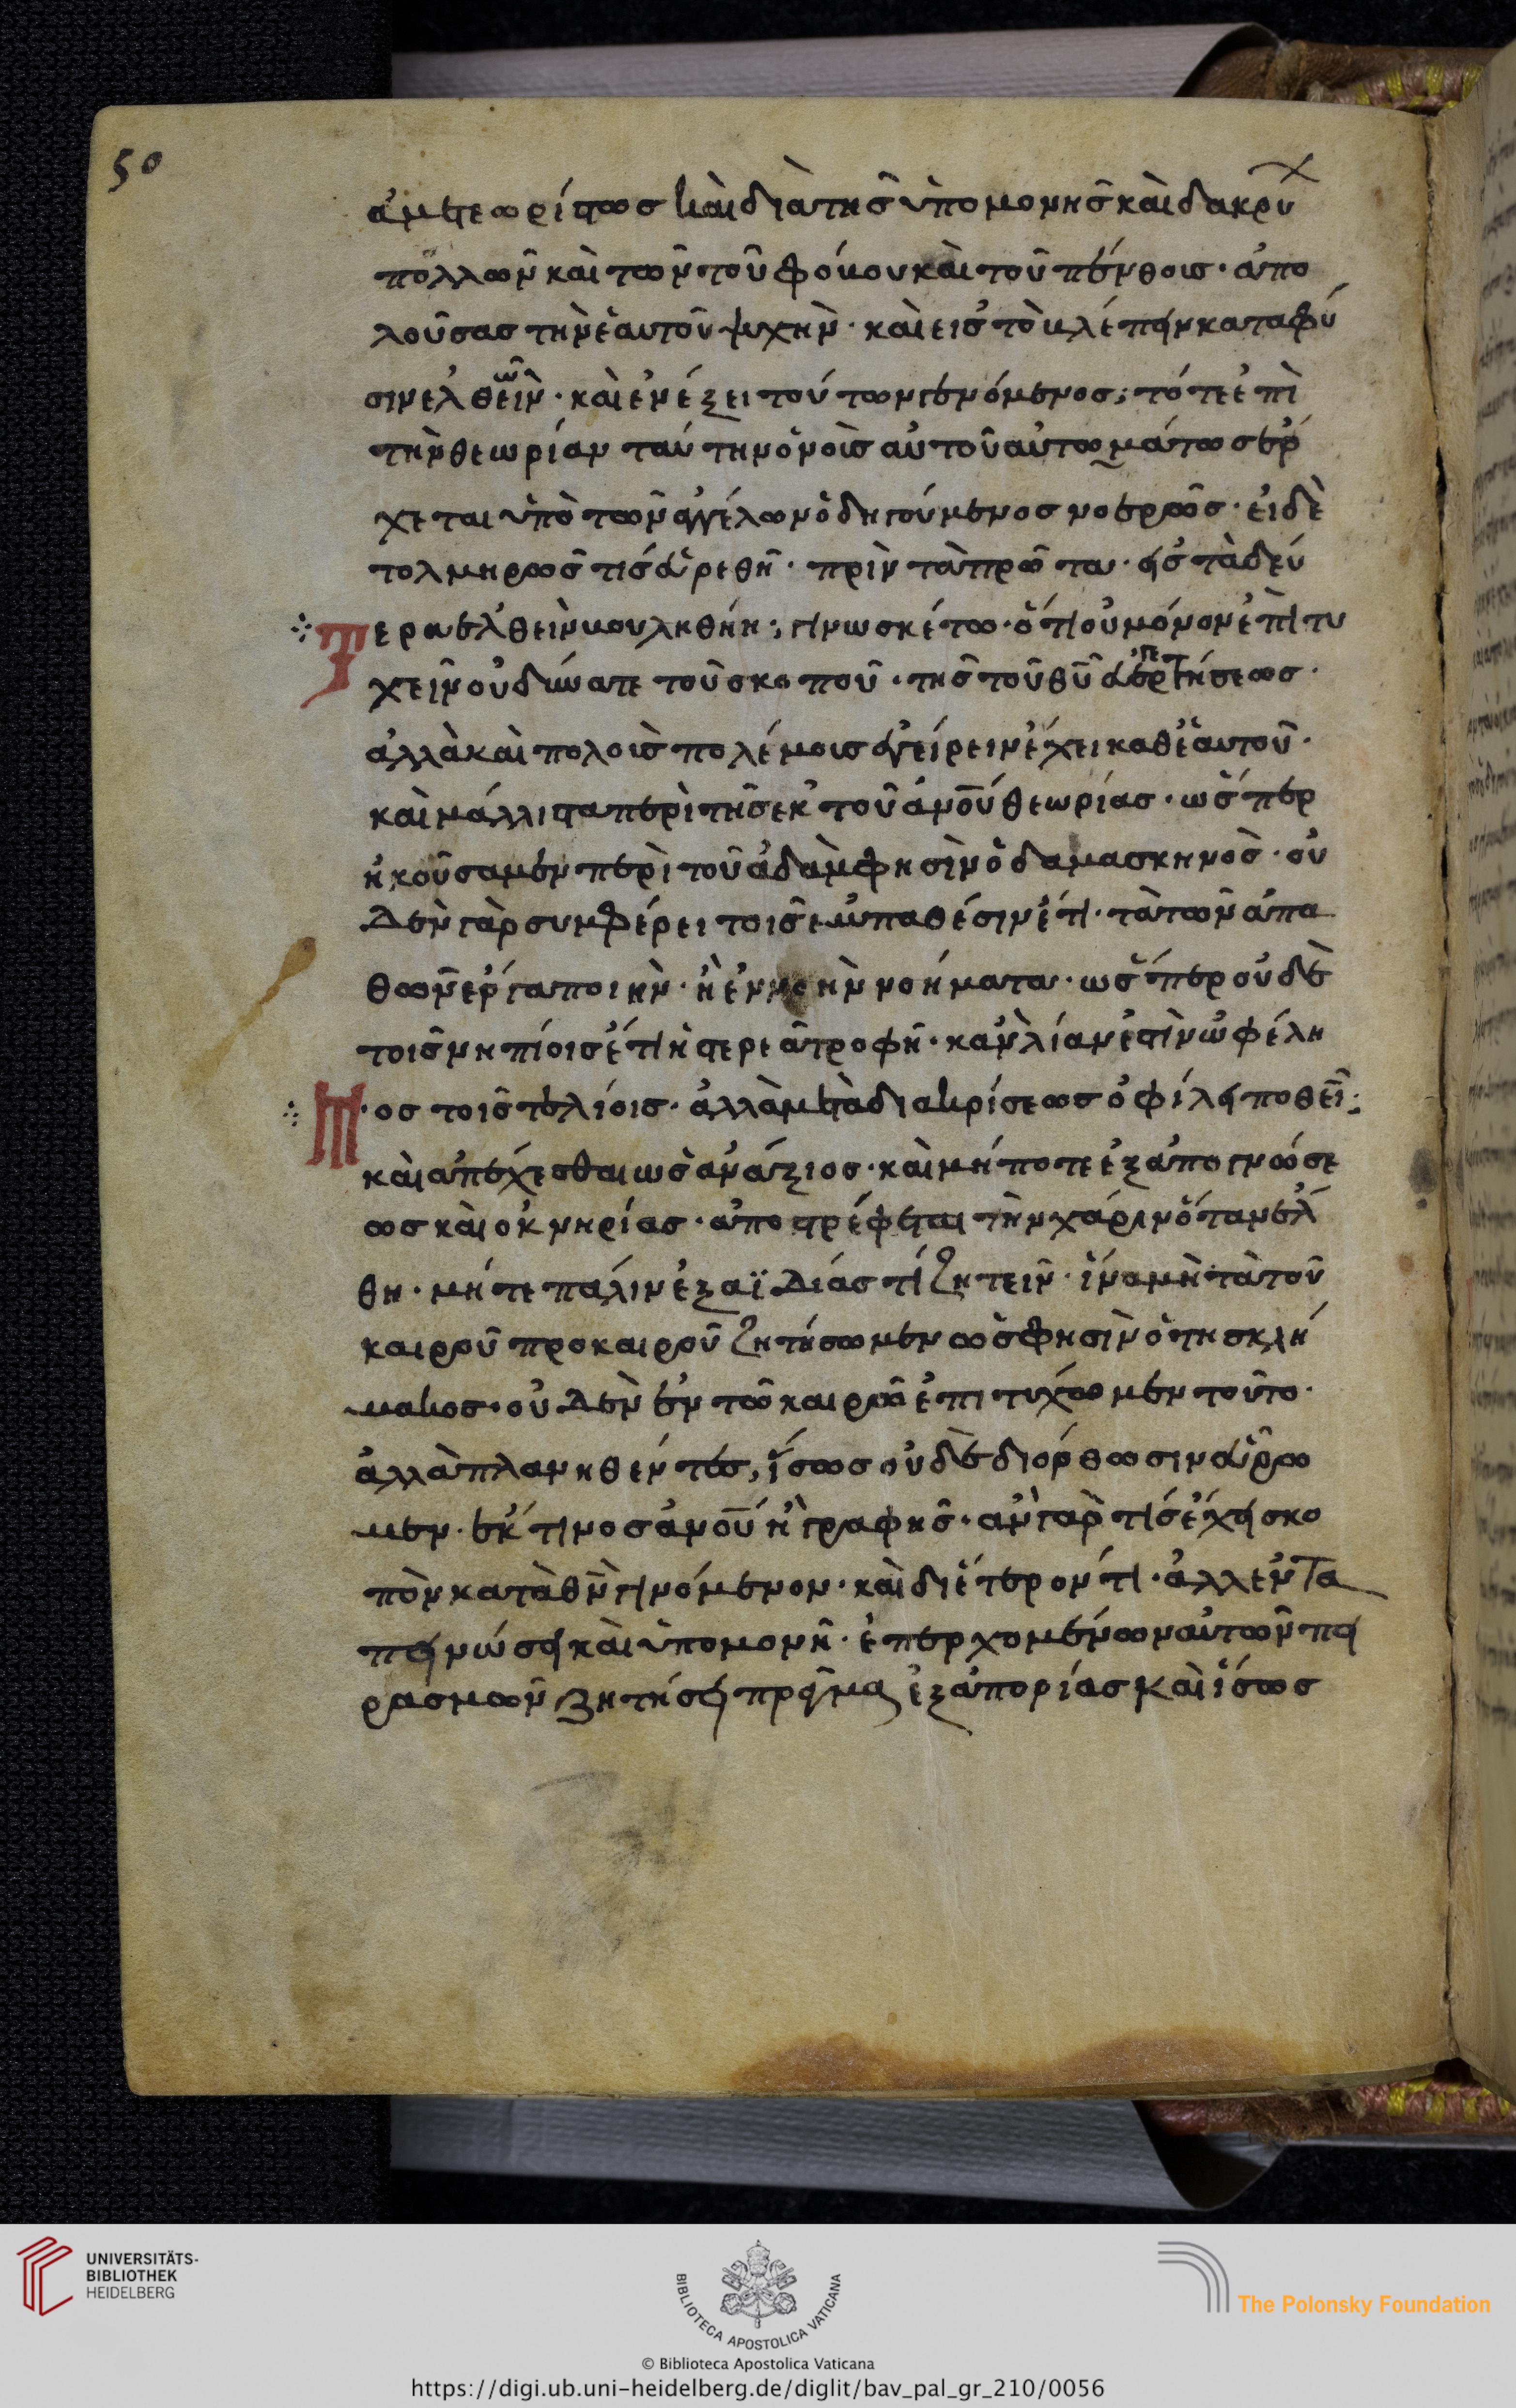 50
ἀμετεωρίστως καὶ διὰ τῆς ὑπομονῆς καὶ δακρύ
πολλῶν καὶ τῶν τοῦ φόβου καὶ τοῦ πένθοις· ἀπο
λούσας τὴν ἑαυτοῦ ψυχὴν· καὶ εἰς τὸ βλέπειν κατα φύ
σιν ἐλθεῖν· καὶ ἐν ἕξει τούτων γενόμενος; τότε ἐπὶ
τὴν θεωρίαν ταύτην ὁ νοῖς αὐτοῦ αὐτωμάτως ἔρ
χεται ὑπὸ τῶν ἀγγέλων ὁδηγούμενος νοερῶς· εἰ δὲ
τολμηρῶς τίς εὑρεθῆ· πρὶν τὰ πρῶτα· εἰς τὰ δεύ
τερα ἐλθεὶν βουληθήη; γινωσκέτω· ὅτι οὐ μόνον ἐπιτυ
χεῖν οὐ δύναται τοῦ σκοποῦ· τῆς τοῦ θῦ εὐαρεστήσεως·
ἀλλὰ καὶ πολοὶς πολέμοις ἐγείρειν ἔχει καθ ἑαυτοῦ·
καὶ μάλλιστα περὶ τῆς ἐκ τοῦ ἀνοῦ θεωρίας· ὡς περ
ἠκούσαμεν περὶ τοῦ ἀδὰμ φησὶν ὁ δαμασκηνὸς· οὐ
δὲν γὰρ συμφέρει τοῖς ἐμπαθέσιν ἔτι· τὰ τῶν ἀπα
θῶν ἔργα ποιὴν· ἢ ἐννοὴν νοήματα· ὡς περ οὐδὲ
τοῖς νηπίοις ἔτι ἡ στερεὰ τροφῆ· κἂν λίαν ἐστὶν ὠφέλη
μος τοῖς τελίοις· ἀλλὰ μετὰ διακρίσεως ὀφίλει ποθεῖν;
καὶ ἀπέχεσθαι ὡς ἀνάξιος· καὶ μήποτε ἐξ ἀπογνώσε
ως καὶ ὀκνηρίας· ἀποστρέφεται τὴν χάριν ὅταν ἔλ
θη· μήτε πάλιν ἐξ αϊδίας τί ζητεῖν· ἵνα μὴ τὰ τοῦ
καιροῦ προ καιροῦ ζητήσωμεν ὡς φησὶν ὁ τῆς κλή
μακος· οὐδὲν ἐν τῶ καιρῶ ἐπιτυχόωμεν τοῦτο·
ἀλλὰ πλανηθέντες, ἴσως οὐδὲ διόρθωσιν εὕρω
μεν· ἔκ τινος ἀνοῦ ἢ γραφῆς· ἂν γὰρ τίς ἔχη σκο
πὸν κατὰ θν γινόμενον· καὶ δι ἕτερον τί· ἀλλ ἐν τα
πεινώσει καὶ ὑπομονῆ· ἐπερχομένων αὐτῶν πει
ρασμῶν ζητήσει πρᾶγμα ἐξ ἀπορίας καὶ ἴσως
UNIVERSITÄTS-
BIBLIOTHEK
HEIDELBERG
BIBLIOTECA APOSTOLICA VATICANA
The Polonsky Foundation
© Biblioteca Apostolica Vaticana
https://digi.ub.uni-heidelberg.de/diglit/bav_pal_gr_210/0056